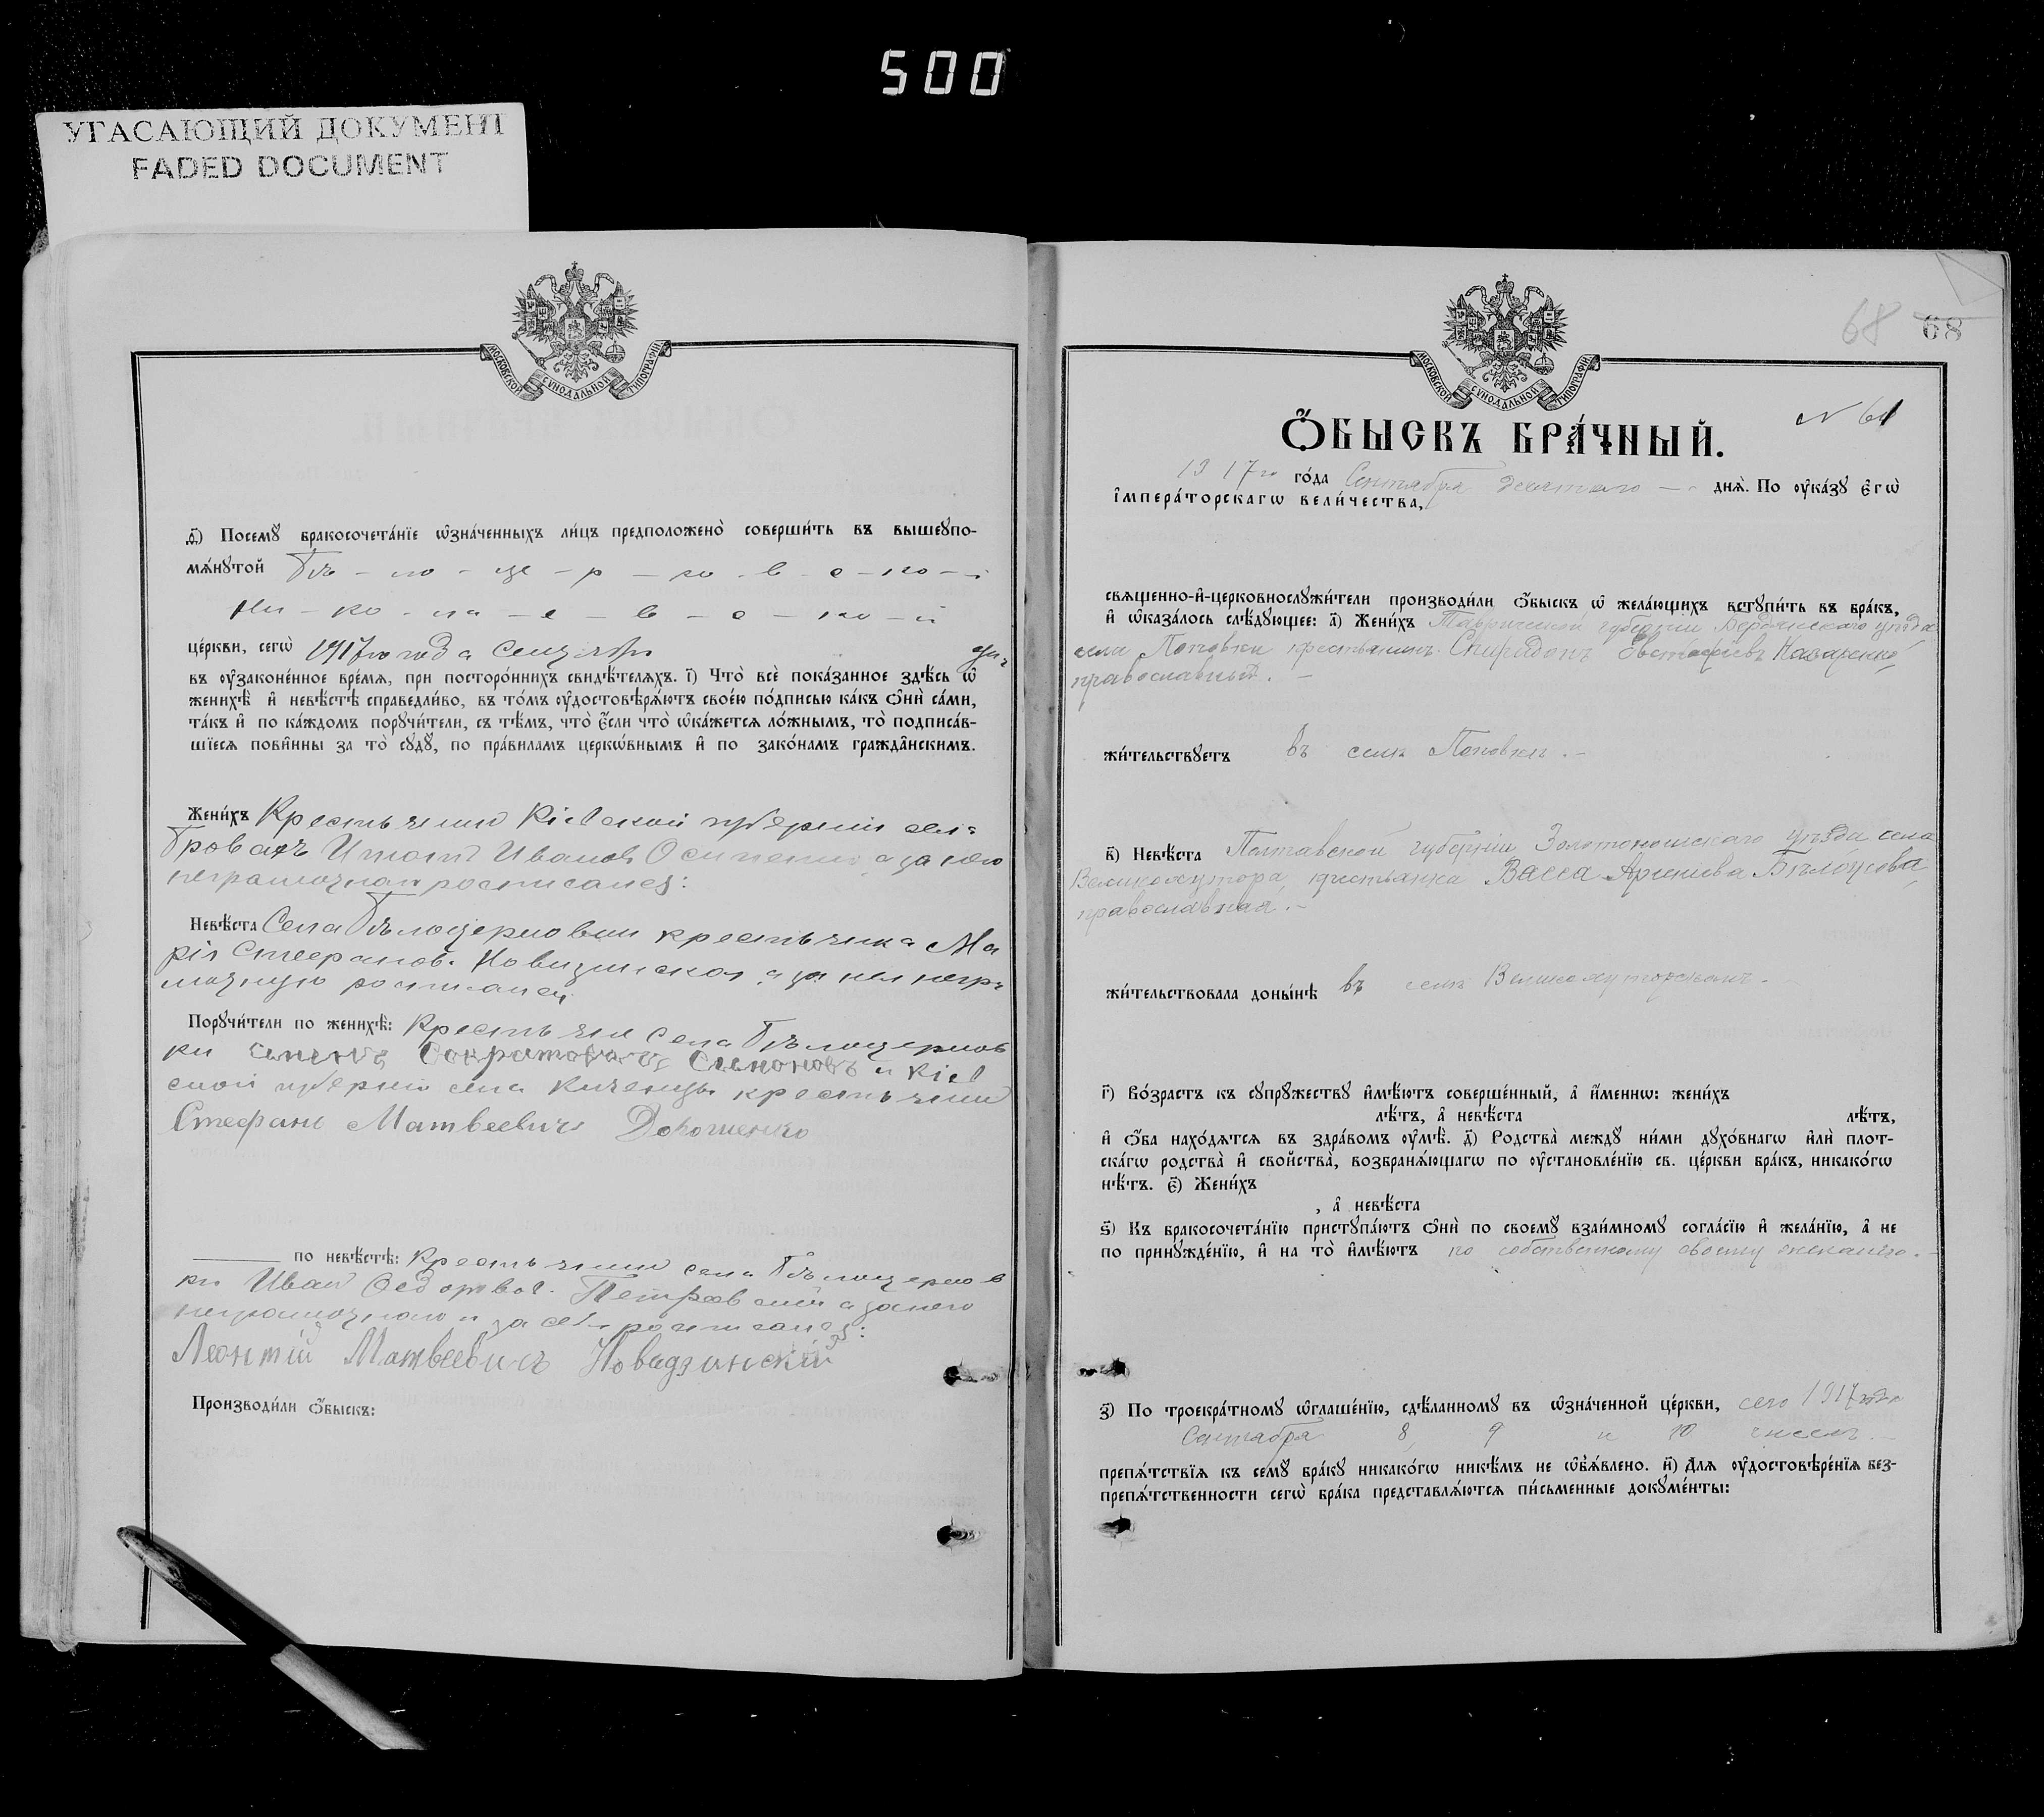 500
УГАСАЮЩИЙ ДОКУМЕНТ
FADED DOCUMENT
МОСКОВСКОЙ СѴНОДАЛЬНОЙ ТИПОГРАФІИ
ѳ҃) Посемꙋ бракосочета́нїе ѡ҆зна́ченныхъ ли́цъ предположено̀ соверши́ть въ вышеꙋпо-
мѧ́нꙋтой Бѣ - ло - це - р - ко - в - с - ко - й
Ни - ко - ла - е - в - с - ко - й
це́ркви, сегѡ̀ 1917го года Сентября дня
въ ᲂу҆законе́нное вре́мѧ, при посторо́ннихъ свидѣ́телѧхъ. і҃) Что̀ всѐ пока́занное здѣ́сь ѡ҆
женихѣ̀ и҆ невѣ́стѣ справедли́во, въ то́мъ ᲂу҆достовѣрѧ́ютъ свое́ю по́дписью ка́къ ѻ҆нѝ са́ми,
та́къ и҆ по ка́ждомъ порꙋчи́тели, съ тѣ́мъ, что̀ є҆́сли что̀ ѡ҆ка́жетсѧ ло́жнымъ, то̀ подписа́в-
шїесѧ пови́нны за то̀ сꙋдꙋ̀, по пра́виламъ церкѡ́внымъ и҆ по зако́намъ гражда̑нскимъ.
Жени́хъ Крестьянин Кіевской губерніи села
Иванов а за него
неграмотнаго росписался:
Невѣ́ста Села Бѣлоцерковки крестьянка Ма
рія Стефанов. а за нея негра
мотную росписался
Порꙋчи́тели по женихѣ̀: Крестьяне Села Бѣлоцерков
ки Сократовичъ Симоновъ и Кіев
ской губерніи села крестьянин
Стефанъ Матвеевичъ Дорошенко
по невѣ́стѣ: Крестьянин села Бѣлоцерков
ки Иван Федоров. Петровскій а за него
неграмотнаго и за себя росписался:
Леонтій Матвеевичъ Новадзинскій
Производи́ли ѻ҆́быскъ:
68 68
МОСКОВСКОЙ СѴНОДАЛЬНОЙ ТИПОГРАФІИ
N 61
Ѻ҆́БЫСКЪ БРА́ЧНЫЙ.
1917го го́да Сентября десятаго днѧ̀. По ᲂу҆ка́зꙋ є҆гѡ̀
і҆мпера́торскагѡ вели́чества,
свѧщенно-и҆-церковнослꙋжи́тели производи́ли ѻ҆́быскъ ѡ҆ жела́ющихъ встꙋпи́ть въ бра́къ,
и҆ ѡ҆каза́лось слѣ́дꙋющее: а҃) Жени́хъ Таврической губерніи Бердянскаго уѣзда
села Поповки крестьянинъ Спиридонъ Евстафіевъ Назаренко,
православный. -
жи́тельствꙋетъ въ селѣ Поповкѣ. -
в҃) Невѣ́ста Полтавской губерніи Золотоношскаго уѣзда села
Великохутора, крестьянка Васса Арсеніева Бѣлоусова,
православная. -
жи́тельствовала доны́нѣ въ селѣ Великохуторскомъ. -
г҃) Во́зрастъ къ сꙋпрꙋ́жествꙋ и҆мѣ́ютъ соверше́нный, а҆ и҆́меннѡ: жени́хъ
лѣ́тъ, а҆ невѣ́ста лѣ́тъ,
и҆ ѻ҆́ба нахо́дѧтсѧ въ здра́вомъ ᲂу҆мѣ̀. д҃) Родства̀ междꙋ ни́ми дꙋхо́внагѡ и҆лѝ плот-
ска́гѡ родства̀ и҆ сво́йства, возбранѧ́ющагѡ по ᲂу҆становле́нїю св. це́ркви бра́къ, никако́гѡ
нѣ́тъ. є҃) Жени́хъ
, а҆ невѣ́ста
ѕ҃) Къ бракосочета́нїю пристꙋпа́ютъ ѻ҆нѝ по своемꙋ̀ взаи́мномꙋ согла́сїю и҆ жела́нїю, а҆ не
по принꙋжде́нїю, и҆ на то̀ и҆мѣ́ютъ по собственному своему желанію. -
з҃) По троекра́тномꙋ ѡ҆глаше́нїю, сдѣ́ланномꙋ въ ѡ҆зна́ченной це́ркви, сего 1917 года
Сентября 8, 9 и 10 чиселъ. -
препѧ́тствїѧ къ семꙋ̀ бра́кꙋ никако́гѡ никѣ́мъ не ѡ҆б̾ѧ́влено. и҃) Длѧ ᲂу҆достовѣре́нїѧ без-
препѧ́тственности сегѡ̀ бра́ка представлѧ́ютсѧ пи́сьменные докꙋме́нты: